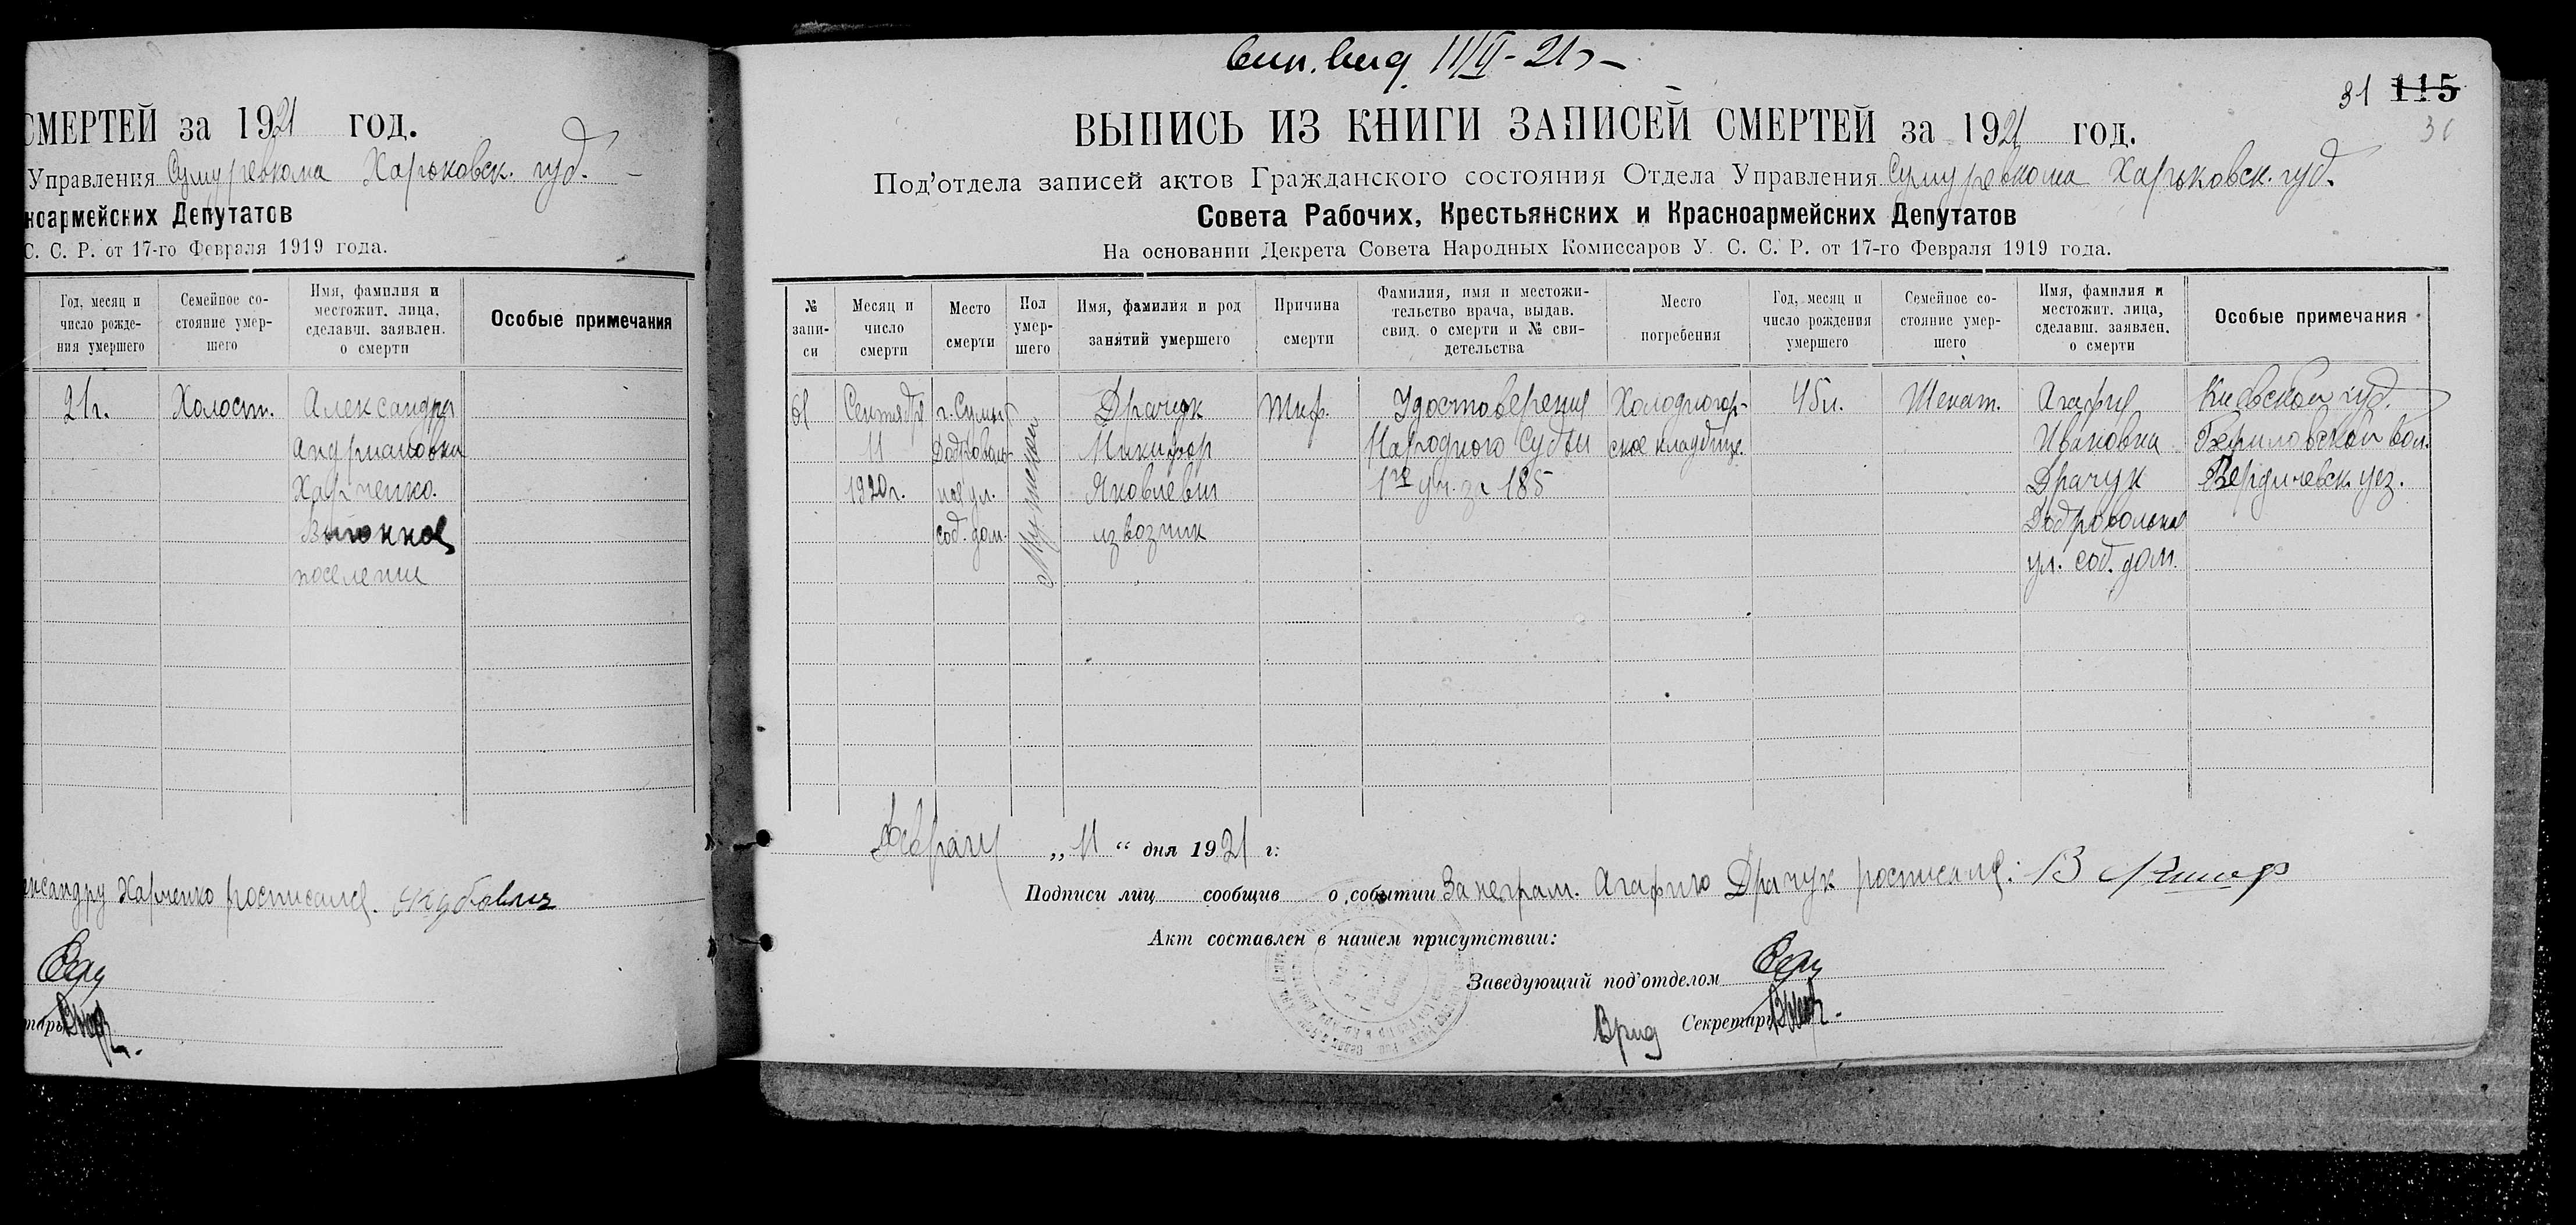 СМЕРТЕЙ за 1921 год.
Управления Сумуревкома Харьковск. губ.
ноармейских Депутатов
С. С. Р. от 17-го Февраля 1919 года.
Год, месяц и число рожде- ния умершего
Семейное со- стояние умер- шего
Имя, фамилия и местожит. лица, сделавш. заявлен. о смерти
Особые примечания
21г.
Холост.
Александра
Андриановна
Харченко.
поселение
ександру Харченко росписался.
11/II-21г
31 115
ВЫПИСЬ ИЗ КНИГИ ЗАПИСЕЙ СМЕРТЕЙ за 1921 год.
Под'отдела записей актов Гражданского состояния Отдела Управления Сумуревкома Харьковск. губ.
Совета Рабочих, Крестьянских и Красноармейских Депутатов
На основании Декрета Совета Народных Комиссаров У. С. С. Р. от 17-го Февраля 1919 года.
№ запи- си
Месяц и число смерти
Место смерти
Пол умер- шего
Имя, фамилия и род занятий умершего
Причина смерти
Фамилия, имя и местожи- тельство врача, выдав. свид. о смерти и № сви- детельства
Место погребения
Год, месяц и число рождения умершего
Семейное со- стояние умер- шего
Имя, фамилия и местожит. лица, сделавш. заявлен. о смерти
Особые примечания
61
Сентября
11
1920г.
г. Сумы
Доброволь-
ная ул.
соб. дом.
Мужской
Драчук
Никифор
Яковлевич
извозчик
Тиф.
Удостоверение
Народного Судьи
1го уч. за 185
Холодногор-
ское кладбище.
45л.
Женат.
Агафия
Ивановна
Драчук
Добровольная
ул. соб. дом.
Киевской губ.
вол.
Бердичевск. уез.
Февраля „11“ дня 1921 г:
Подписи лиц сообщив о событии За неграм. Агафию Драчук росписался:
Акт составлен в нашем присутствии:
Заведующий под'отделом
Врид Секретарь